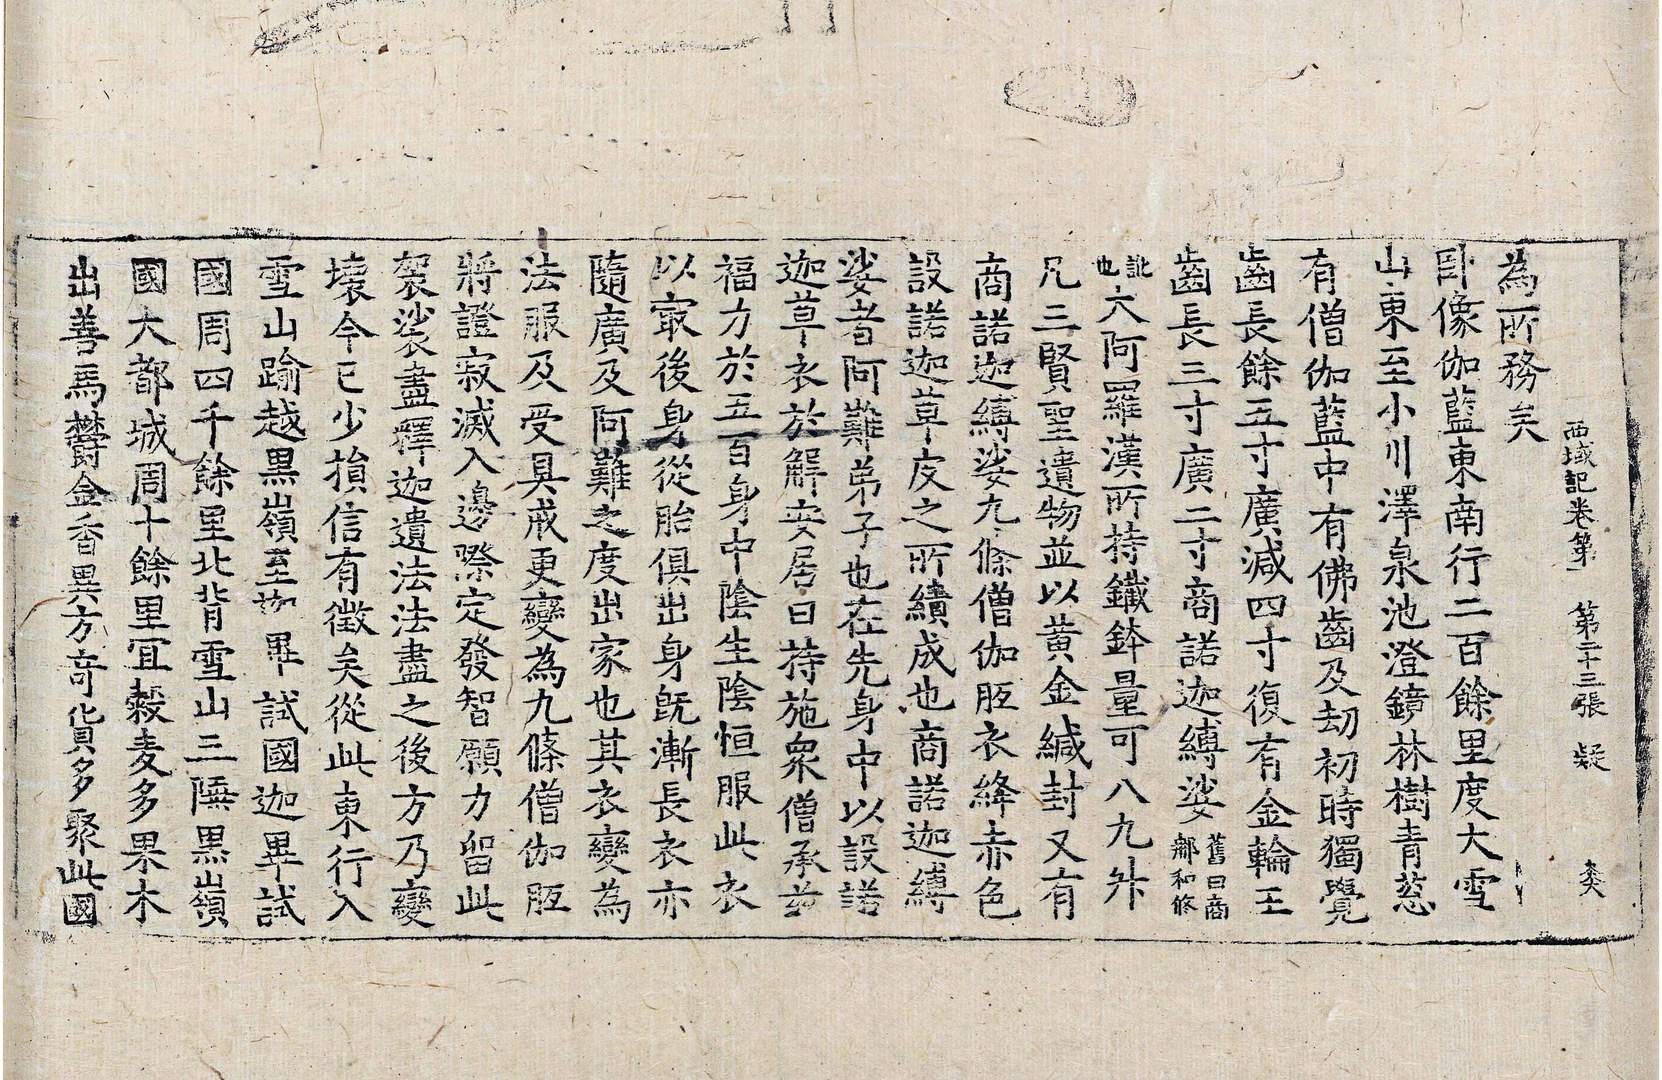 西域記卷第一 第二十三張 疑
為所務矣
卧像伽藍東南行二百餘里度大雪
山東至小川澤泉池澄鏡林樹青葱
有僧伽藍中有佛齒及劫初時獨覺
齒長餘五寸廣减四寸復有金輪王
齒長三寸廣二寸商諾迦縛娑舊曰商郍和修
訛也大阿羅漢所持鐵鉢量可八九升
凡三賢聖遺物並以黃金緘封又有
商諾迦縛娑九條僧伽胝衣絳赤色
設諾迦草皮之所績成也商諾迦縛
娑者阿難弟子也在先身中以設諾
迦草衣於解安居日持施衆僧承茲
福力於五百身中陰生陰恒服此衣
以冣後身從胎俱出身既漸長衣亦
隨廣及阿難之度出家也其衣變為
法服及受具戒更變為九條僧伽胝
將證寂滅入邊際定發智願力留此
袈裟盡釋迦遺法法盡之後方乃變
壞今已少損信有徵矣從此東行入
雪山踰越黑嶺至迦畢試國迦畢試
國周四千餘里北背雪山三陲黑嶺
國大都城周十餘里宜穀麦多果木
出善馬欝金香異方奇貨多聚此國